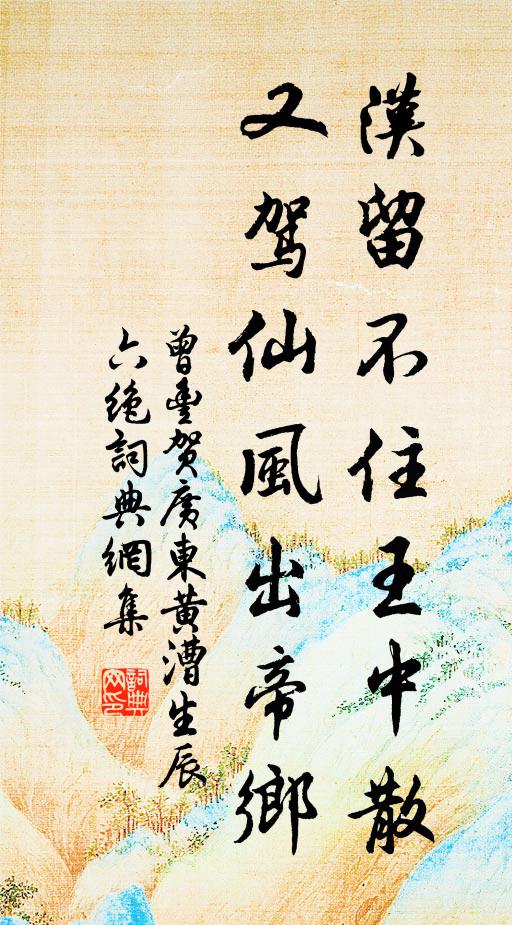 漢留不住王中散
又駕仙風出帝鄉
曾豐賀廣東黃漕生辰
六絶詞典網集
詞典
网印